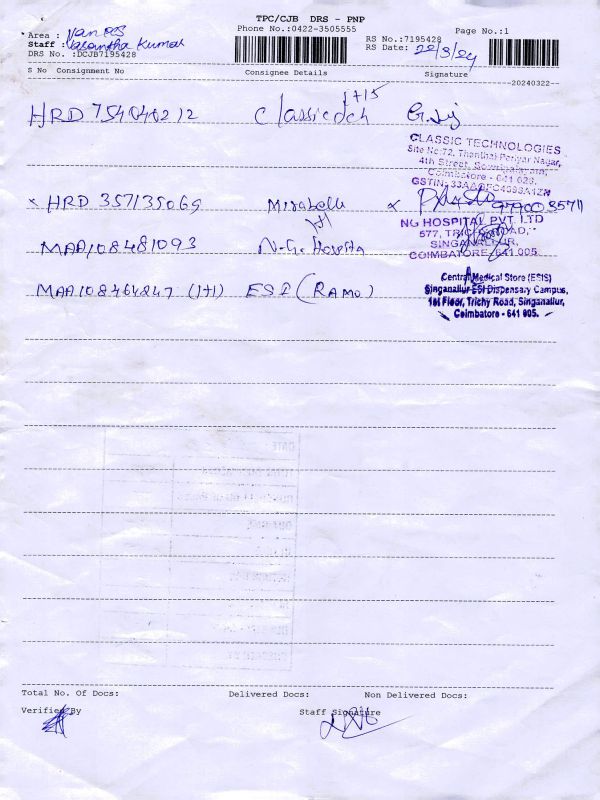 TPC/CJB DRS - PNP
Phone No.:0422-3505555
Page No.:1
Area :
Staff : Vasantha Kumar
DRS No. :DCJB7195428
RS No.:7195428
RS Date: 22/3/24
S No Consignment No Consignee Details Signature
20240322
HRD 754040212
1+15
CLASSIC TECHNOLOGIES
Site No:72, Thanthai Periyar Nagar,
4th Street, Gowripalayam,
Coimbatore - 641 028.
x HRD 357135069 Mirabelle x
1+1
NG HOSPITAL PVT. LTD
577, TRICHY ROAD,
SINGANALLUR,
COIMBATORE-641 005.
MAA108481093 N.G. Hospita
MAA108464847 (1+1) ESI (RAMO)
Central Medical Store (ESIS)
Singanallur ESI Dispensary Campus,
1st Floor, Trichy Road, Singanallur,
Coimbatore - 641 005.
Total No. Of Docs: Delivered Docs: Non Delivered Docs:
Verified By Staff Signature